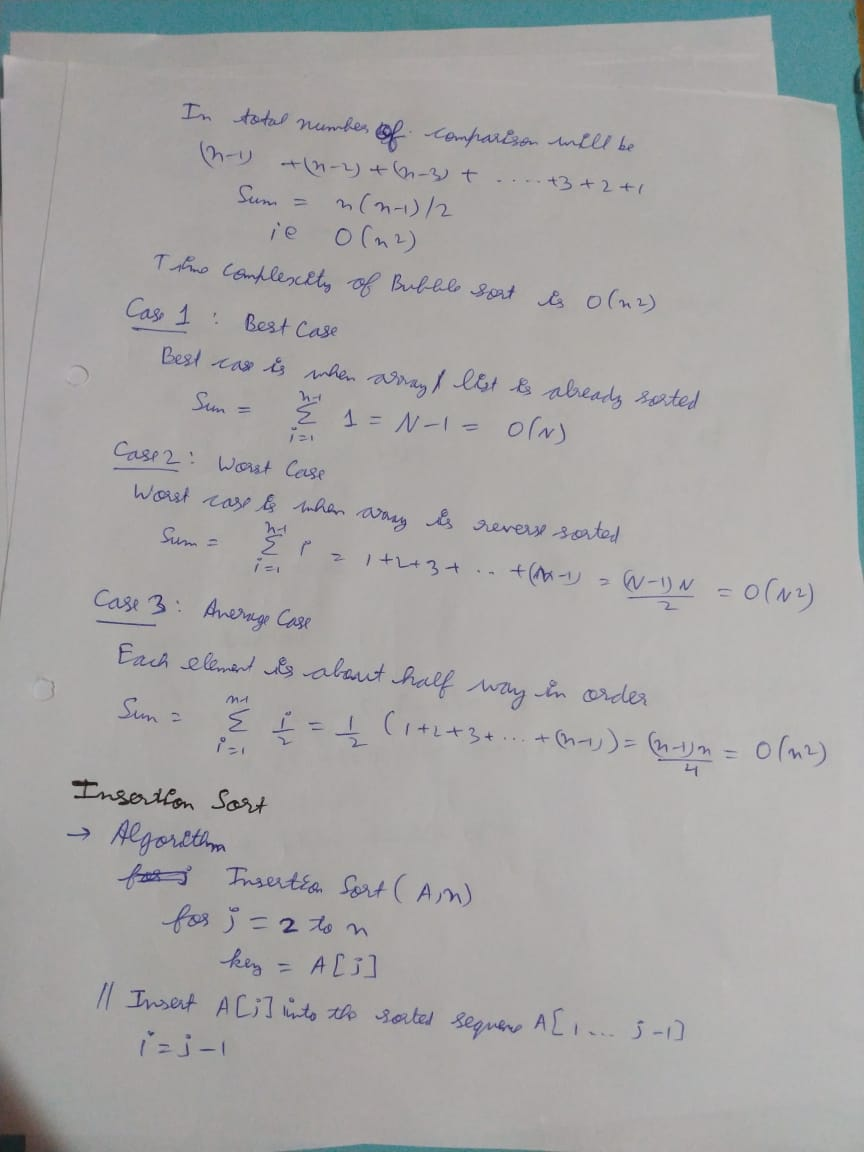 In total number of comparison will be
(n-1) +(n-2) + (n-3) + ..... +3 +2 +1
Sum = n(n-1)/2
ie O(n2)
Time Complexity of Bubble sort is O(n2)
Case 1 : Best Case
Best case is when array / list is already sorted
Sum = n-1 Σ i=1 1 = N-1 = O(N)
Case 2 : Worst Case
Worst case is when array is reverse sorted
Sum = n-1 Σ i=1 i = 1+2+3+ .. +(N-1) = (N-1)N/2 = O(N2)
Case 3 : Average Case
Each element is about half way in order
Sum = n-1 Σ i=1 i/2 = 1/2 (1+2+3+...+(n-1)) = (n-1)n/4 = O(n2)
Insertion Sort
→ Algorithm
for j Insertion Sort ( A,n)
for j = 2 to n
key = A[j]
// Insert A[j] into the sorted sequence A[1... j-1]
i = j-1